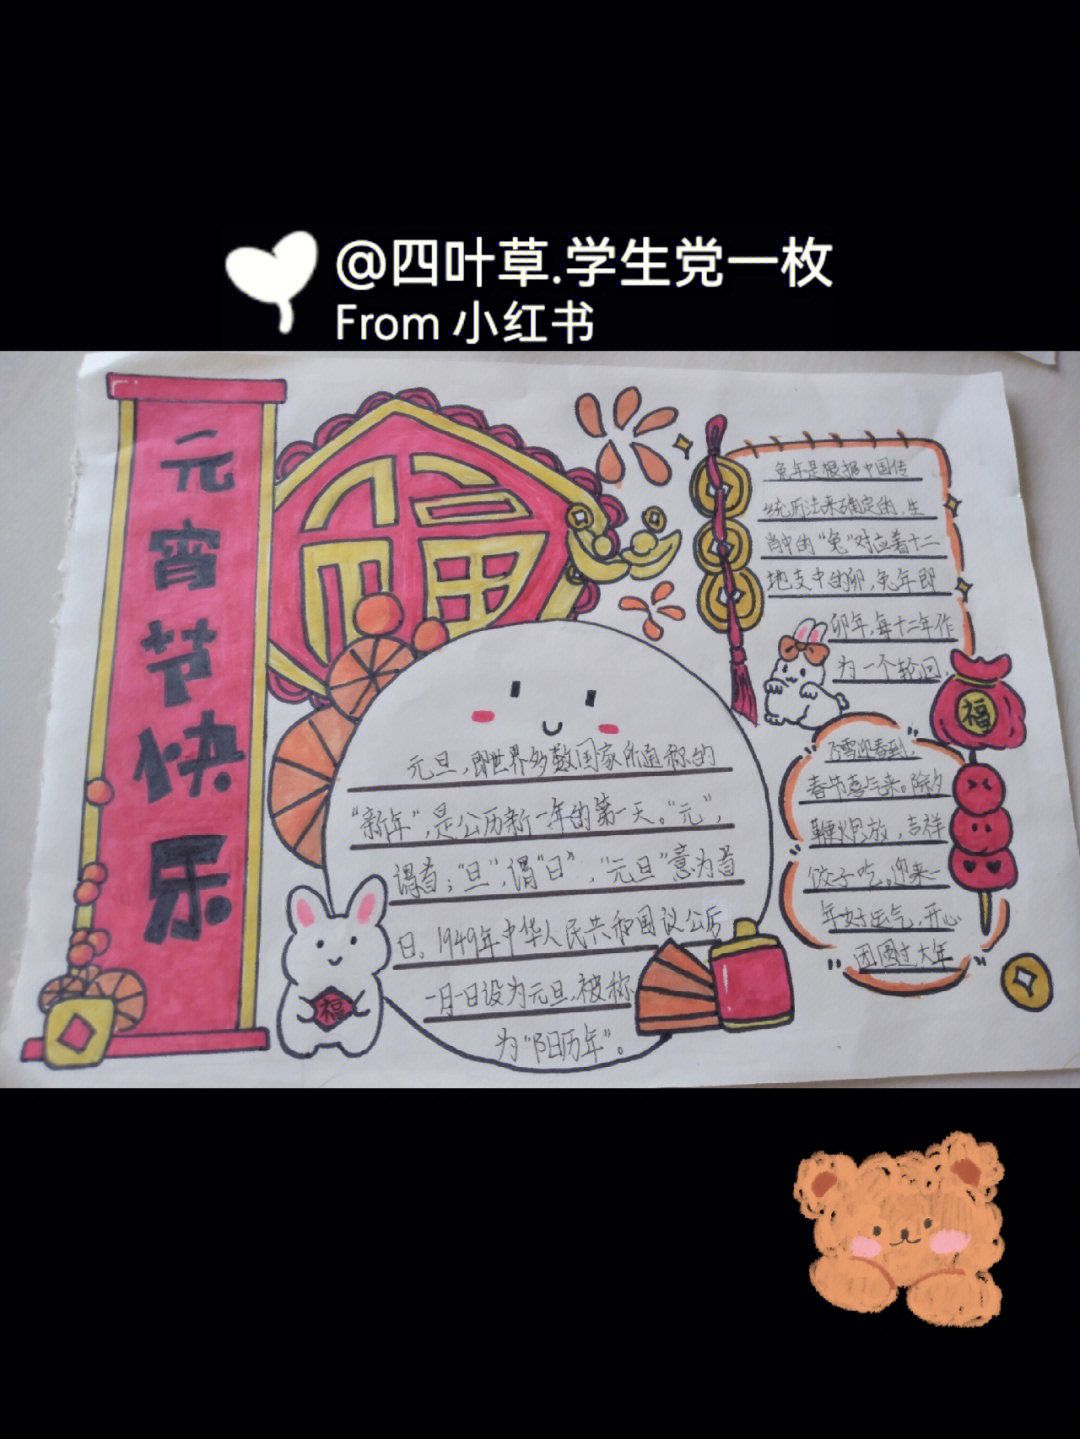 @四叶草.学生党一枚
From 小红书
元宵节快乐
福
兔年是根据中国传
统历法来确定的,生
肖中的“兔”对应着十二
地支中的卯,兔年即
卯年,每十二年作
为一个轮回。
福
元旦,即世界多数国家所通称的
“新年”,是公历新一年的第一天。“元”,
谓首;“旦”,谓“日”,“元旦”意为首
日。1949年中华人民共和国议公历
一月一日设为元旦,被称
为“阳历年”。
福
飞雪迎春到,
春节喜气来。除夕
鞭炮放,吉祥
饺子吃。迎来一
年好运气,开心
团圆过大年